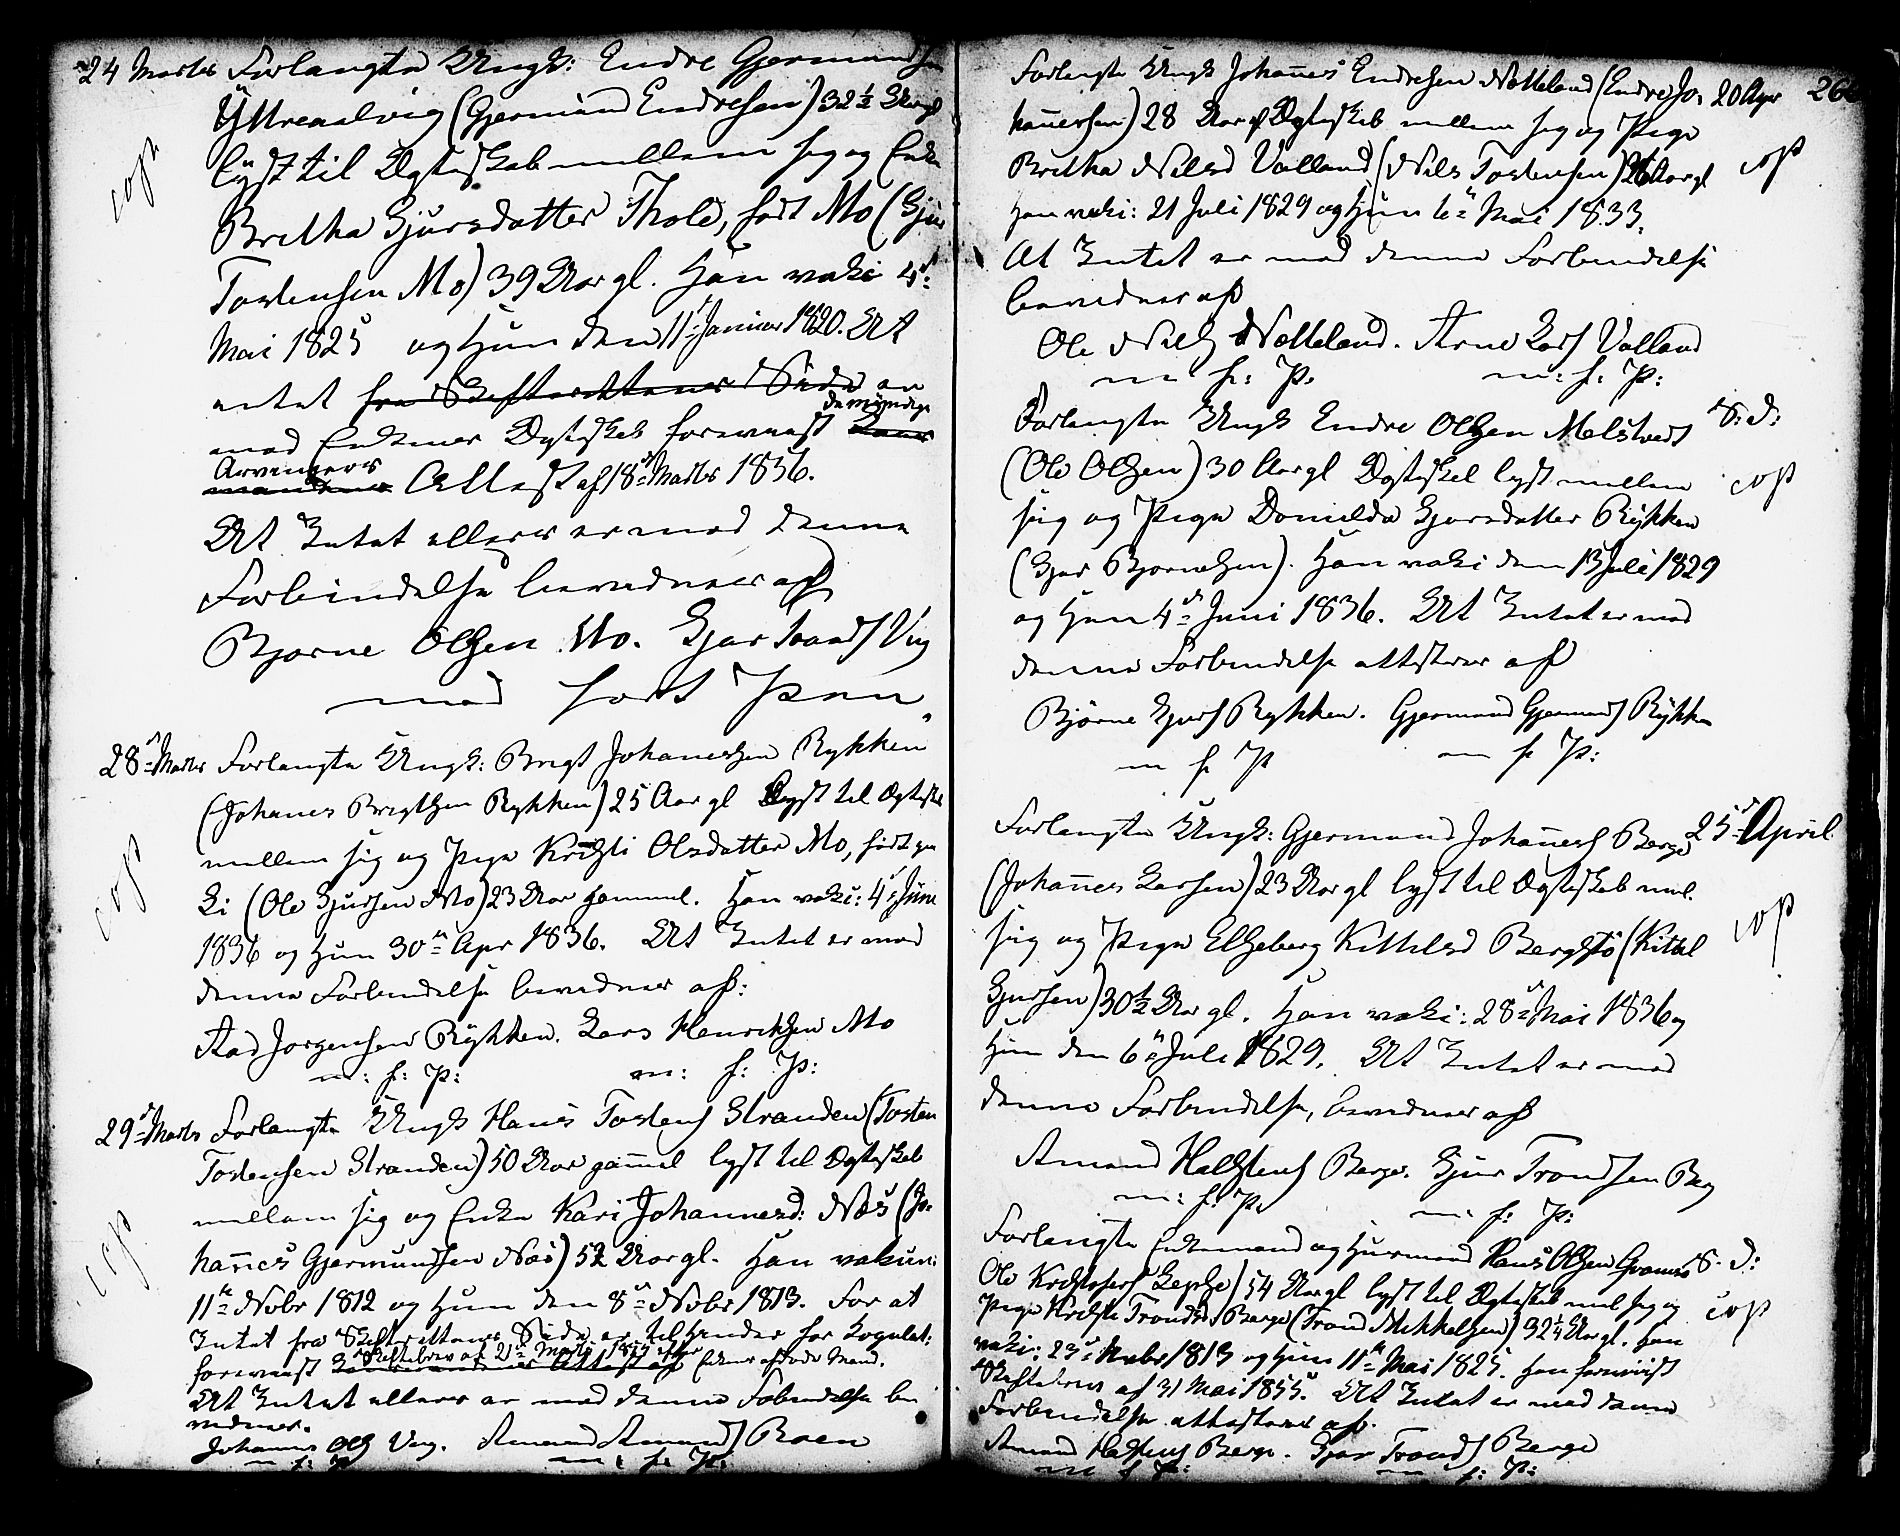 24 Martz Forlangte Ungk: Endre Gjermundsen
Yttreaalvig (Gjermund Endresen) 32½ Aar gl
cop
lyst til Ægteskab mellem sig og Enke
Britha Gjursdatter Thole, født Mo (Gjur
Tostensen Mo) 39 Aar gl. Han vaki 4de
Mai 1825 og Hun den 11te Januar 1820. At
intet fra Skifterettens Side er
mod Enkens Ægteskab foreviist
de myndige
Arvingers Attest af 18de Martz 1856.
At Intet ellers er mod denne
Forbindelse bevidner af
Bjorne Olsen Mo. Gjur Vig
med ført Pen
28de Martz Forlangte Ungk: Brigt Johanessen Rykken
(Johanes Brigtsen Rykken) 25 Aar gl Lyst til Ægtesk
cop
mellem sig og Pige Kristi Olsdatter Mo, født
(Ole Gjursen Mo) 23 Aar gammel. Han vaki: 4de Juni
1836 og Hun 30te Apr 1836. At Intet er mod
denne Forbindelse bevidner af:
Aad Jorgensen Rykken. Lars Henriksen Mo
m: f: P: m: f: P:
29de Martz Forlangte Ungk Hans Tostens Stranden (Tosten
Tostensen Stranden) 50 Aar gammel lyst til Ægteskab
cop
mellem sig og Enke Kari Johannesd: Næs (Jo-
hannes Gjermundsen Næs) 52 Aar gl. Han vaksin:
11te Novbr 1812 og Hun den 8de Novbr 1813. For at
Intet fra Skifterettens Side er til Hinder for Copulat:
Skiftebrev af 21de Martz 1857 efter
foreviist Enkens afdøde Mand.
At Intet ellers er mod denne Fobindelse be
vidner.
Johannes Ols Vig. Amund Amunds Roen
m: f: P m: f: P:
Forlangte Ungk Johannes Endresen Netteland (Endre Jo- 20 Apr 26
hannessen) 28 Aar gl Ægteskab mellem sig og Pige
Britha Nilsd Valland (Nils Tostensen) 26 Aar gl
cop
Han vaki: 21 Juli 1829 og Hun 6te Mai 1833.
At Intet er mod denne Forbindelse
bevidner af
Ole Niels Netteland. Arne Lars Valland
m f: P. m: f: P:
Forlangte Ungk Endre Olsen Melstveit S: d:
(Ole Olsen) 30 Aar gl Ægteskab lyst mellem
cop
sig og Pige Domilda Gjursdatter Rykken
(Gjur Bjornesen). Han vaki den 13 Juli 1829
og Hun 4de Juni 1836. At Intet er mod
denne Forbindelse attesterer af
Bjørne Gjurs Rykken. Gjermund Gjermunds Rykken
m f P m f P:
Forlangte Ungk: Gjermund Johannes Berge 25de April
(Johannes Larsen) 23 Aar gl lyst til Ægteskab mel.
cop
sig og Pige Elseberg Kittelsd Bergstø (Kittel
Gjursen) 30½ Aar gl. Han vaki: 28de Mai 1836 og
Hun den 6te Juli 1829. At Intet er mod
denne Forbindelse, bevidner af
Amund Halstens Berge. Gjur Trondsen Berg
m: f: P. m. f: P:
Forlangte Enkemand og Huusmand Hans Olsen S. d:
Ole Kristofers 54 Aar gl lyst til Ægteskab mel sig og
cop
Pige Kristi Trondsd Berge (Trond Mikkelsen) 32¼ Aar gl. Han
vaki: 23de Novbr 1813 og Hun 11te Mai 1825. Han foreviist
Skiftebrev af 31 Mai 1855. At Intet er mod denne
Forbindelse attesterer af.
Amund Halstens Berge. Gjur Tronds Berge
m f P: m f: P: